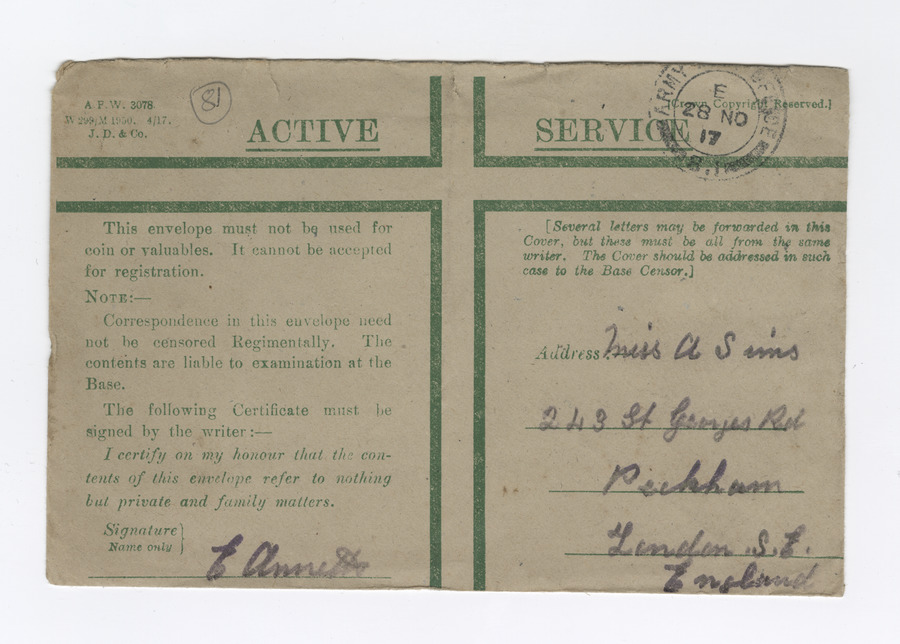 A.F.W. 3078
W 299/M 1950. 4/17.
J. D. & Co.
81
ACTIVE SERVICE
[Crown Copyright Reserved.]
ARMY
E
28 NO
17
This envelope must not be used for
coin or valuables. It cannot be accepted
for registration.
NOTE:—
Correspondence in this envelope need
not be censored Regimentally. The
contents are liable to examination at the
Base.
The following Certificate must be
signed by the writer:—
I certify on my honour that the con-
tents of this envelope refer to nothing
but private and family matters.
Signature
Name only
E Annetts
[Several letters may be forwarded in this
Cover, but these must be all from the same
writer. The Cover should be addressed in such
case to the Base Censor.]
Address Miss A Sims
243 St Georges Rd
Peckham
London. S.E.
England